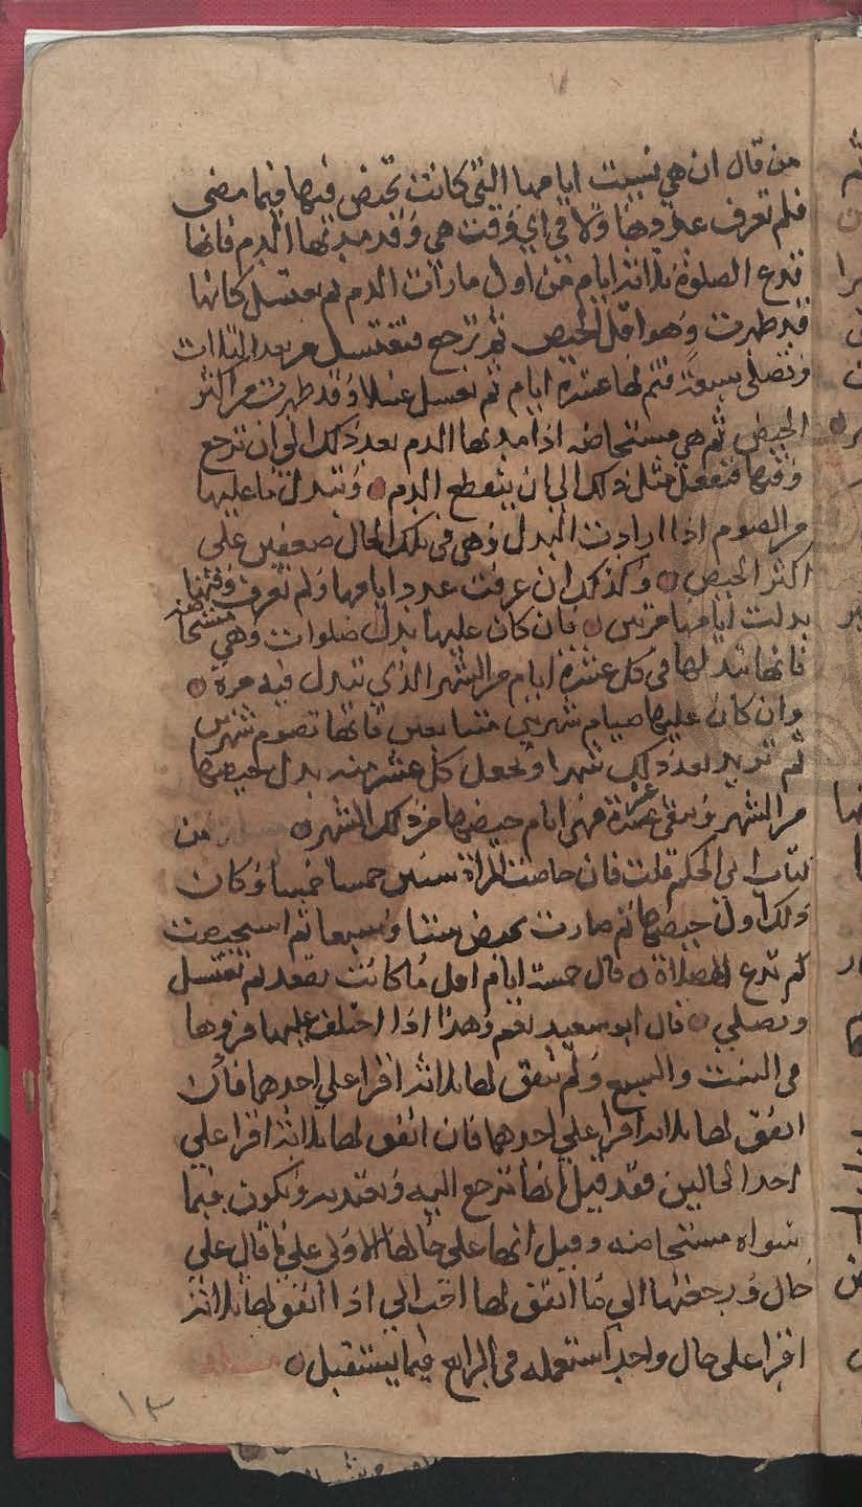 من قال ان هي نسيت ايامها التي كانت تحيض فيها فيما مضى
فلم تعرف عددها ولا في اي وقت هي وقد مد بها الدم فانها
تدع الصلوة ثلاثة ايام من اول ما رات الدم ثم تغتسل كانها
قد طهرت وهو اقل الحيض ثم ترجع فتغتسل من بعد الثلاث
وتصلي سبعة فتتم لها عشرة ايام ثم تغسل غسلا وقد طهرت من اكثر
الحيض ثم هي مستحاضه اذا مد بها الدم بعد ذلك الى ان ترجع
وقتها فتفعل مثل ذلك الى ان ينقطع الدم وتبدل ما عليها
من الصوم اذا ارادت البدل وهي في تلك الحال ضعفين على
اكثر الحيض وكذلك ان عرفت عدد ايامها ولم تعرف وقتها
بدلت ايامها مرتين فان كان عليها بدل صلوات وهي مستحاضه
فانها تبدلها في كل عشرة ايام من الشهر الذي تبدل فيه مرة
وان كان عليها صيام شهرين متتابعين فانها تصوم شهرين
ثم تزيد بعد ذلك شهرا وتجعل كل عشر منه بدل حيضها
من الشهر وتبقى عشرة فهي ايام حيضها من ذلك الشهر من
كتاب ابي الحكم قلت فان حاضت المراة سنتين خمسا خمسا وكان
ذلك اول حيضها ثم صارت تحيض ستا وسبعا ثم استحيضت
كم تدع الصلاة قال خمسة ايام اول ما كانت تقعد ثم تغتسل
وتصلي قال ابو سعيد نعم وهذا اذا اختلف عليها قروها
في الست والسبع ولم يتفق لها ثلاثة اقرا على احدهما فان
اتفق لها ثلاثة اقرا على احدهما فان اتفق لها ثلاثة اقرا على
احد الحالين فقد قيل انها ترجع اليه وتعتد به وتكون فيما
سواه مستحاضه وقيل انها على حالها الاولى على ما قال على
حال ورجعتها الى ما اتفق لها احب الي اذا اتفق لها ثلاثة
اقرا على حال واحد استعمله في الرابع فيما يستقبل مسئلة
١٣